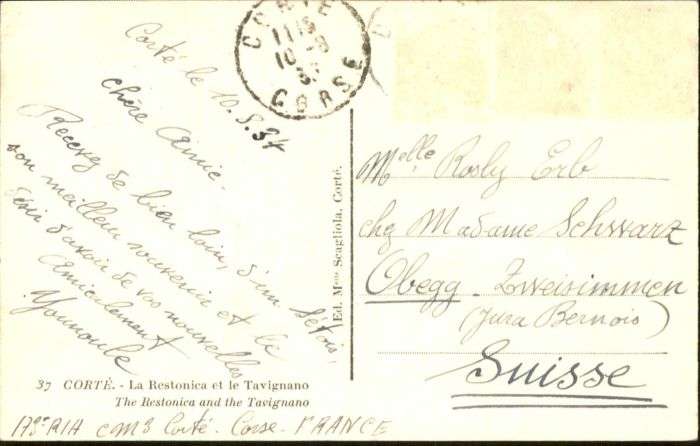 CORTE
11 H
10
CORSE
Corté le 10.8.34
chère Amie.
Recevez de bien loin, d'un
son meilleur souvenir et le
désir d'avoir de vos nouvelles
Amicalement
Ed. Mme Scagliola, Corté.
Melle Rosly Erb
chez Madame Schwarz
Obegg - Zweisimmen
(Jura Bernois)
Suisse
37 CORTÉ. - La Restonica et le Tavignano
The Restonica and the Tavignano
173e RIA Corté - Corse - FRANCE